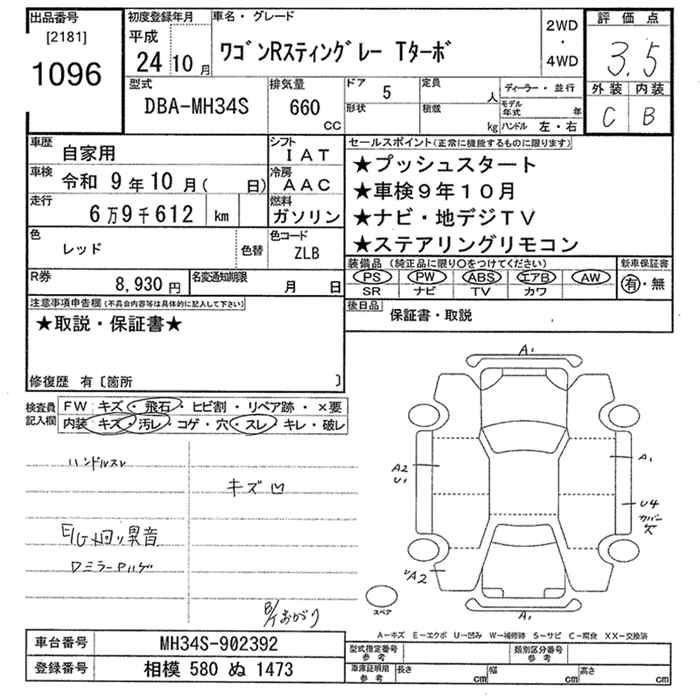 出品番号
[2181]
1096
初度登録年月
平成
24 10 月
車名・グレード
ワゴンRスティングレー Tターボ
2WD
・
4WD
評価点
3.5
外装 内装
C B
型式
DBA-MH34S
排気量
660
CC
ドア 5
定員 人
形状
積載 kg
ディーラー・並行
モデル年式 年
ハンドル 左・右
車歴 自家用
シフト IAT
車検 令和 9年10月( 日)
冷房 AAC
走行 6万9千612 km
燃料 ガソリン
色 レッド 色替
色コード ZLB
R券 8,930 円
名変通知期限 月 日
セールスポイント(正常に機能するものに限ります)
★プッシュスタート
★車検9年10月
★ナビ・地デジTV
★ステアリングリモコン
装備品 (純正品に限り○をつけてください)
新車保証書
PS PW ABS エアB AW
有・無
SR ナビ TV カワ
後日品 保証書・取説
注意事項申告欄(不具合内容等は具体的に記入して下さい)
★取説・保証書★
修復歴 有〔箇所 〕
検査員記入欄
FW キズ・飛石・ヒビ割・リペア跡・×要
内装 キズ・汚レ・コゲ・穴・スレ・キレ・破レ
ハンドルスレ
キズ凹
E/G廻り異音
B/Tあがり
A1
A2
U1
A1
U4
カバー
A2
A1
スペア
A−キズ E−エクボ U−凹み W−補修跡 S−サビ C−腐食 XX−交換済
車台番号 MH34S-902392
登録番号 相模 580 ぬ 1473
型式指定番号
参考
類別区分番号
参考
車庫証明用
参考
長さ cm 幅 cm 高さ cm